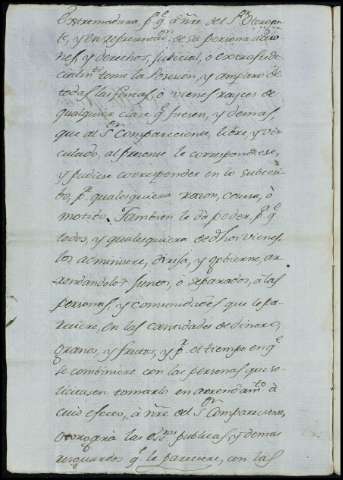 Extremadura pª qᵉ à nrē del Sʳ Otorgan-
te, y en representⁿ de su persona accio
nes, y derechos, Judicial, o extrajudi
cialmᵗᵉ tome la posesion, y amparo de
todas las fincas, o vienes rayzes de
qualquier clase qᵉ fuesen, y demas,
que al Sʳ Compareciente, libre, y vin
culado, al presente le corresponde,
y pudiere corresponder en lo subcesi
bo, pʳ qualesquiera razon, causa, ò
motivo. Tambien le da poder, pª qᵉ
todos, y qualesquiera de dhos vienes
los administre, dirija, y govierne, ar
rendandolos juntos, o separados, à las
personas, y comunidades que le pa
reciere, en las cantidades de dinero,
granos, y frutos, y pʳ el tiempo en qᵉ
se combiniere con las personas que so
liciten tomarlos en arrendamᵗᵒ à
cuio efecto, à nrē del Sʳ Compareciente,
otorgará las essʳᵃˢ publicas, y demas
resguardos qᵉ le pareciere, con las